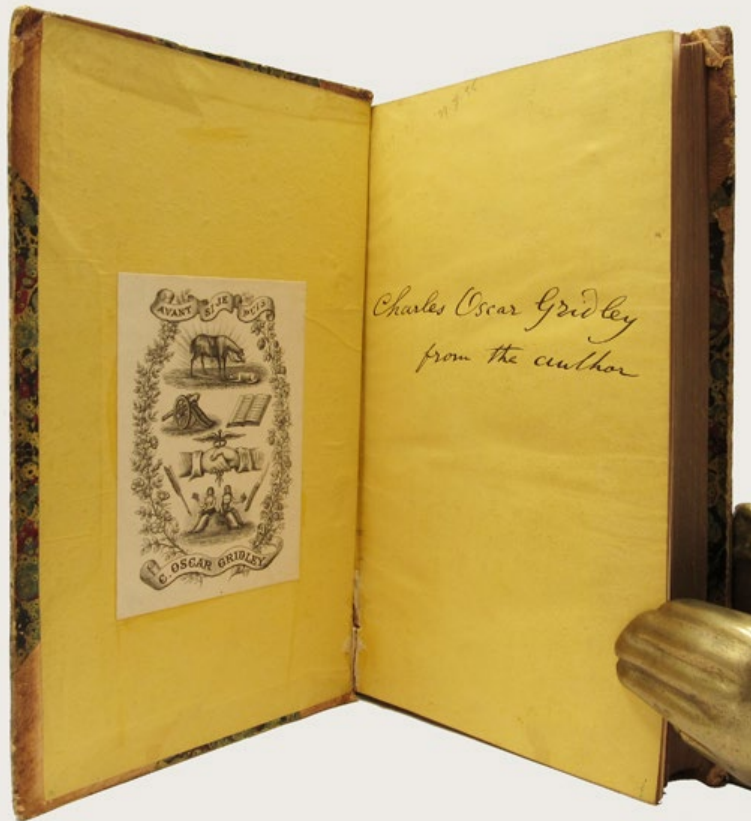 AVANT SI JE PUIS
C. OSCAR GRIDLEY
Charles Oscar Gridley
from the author